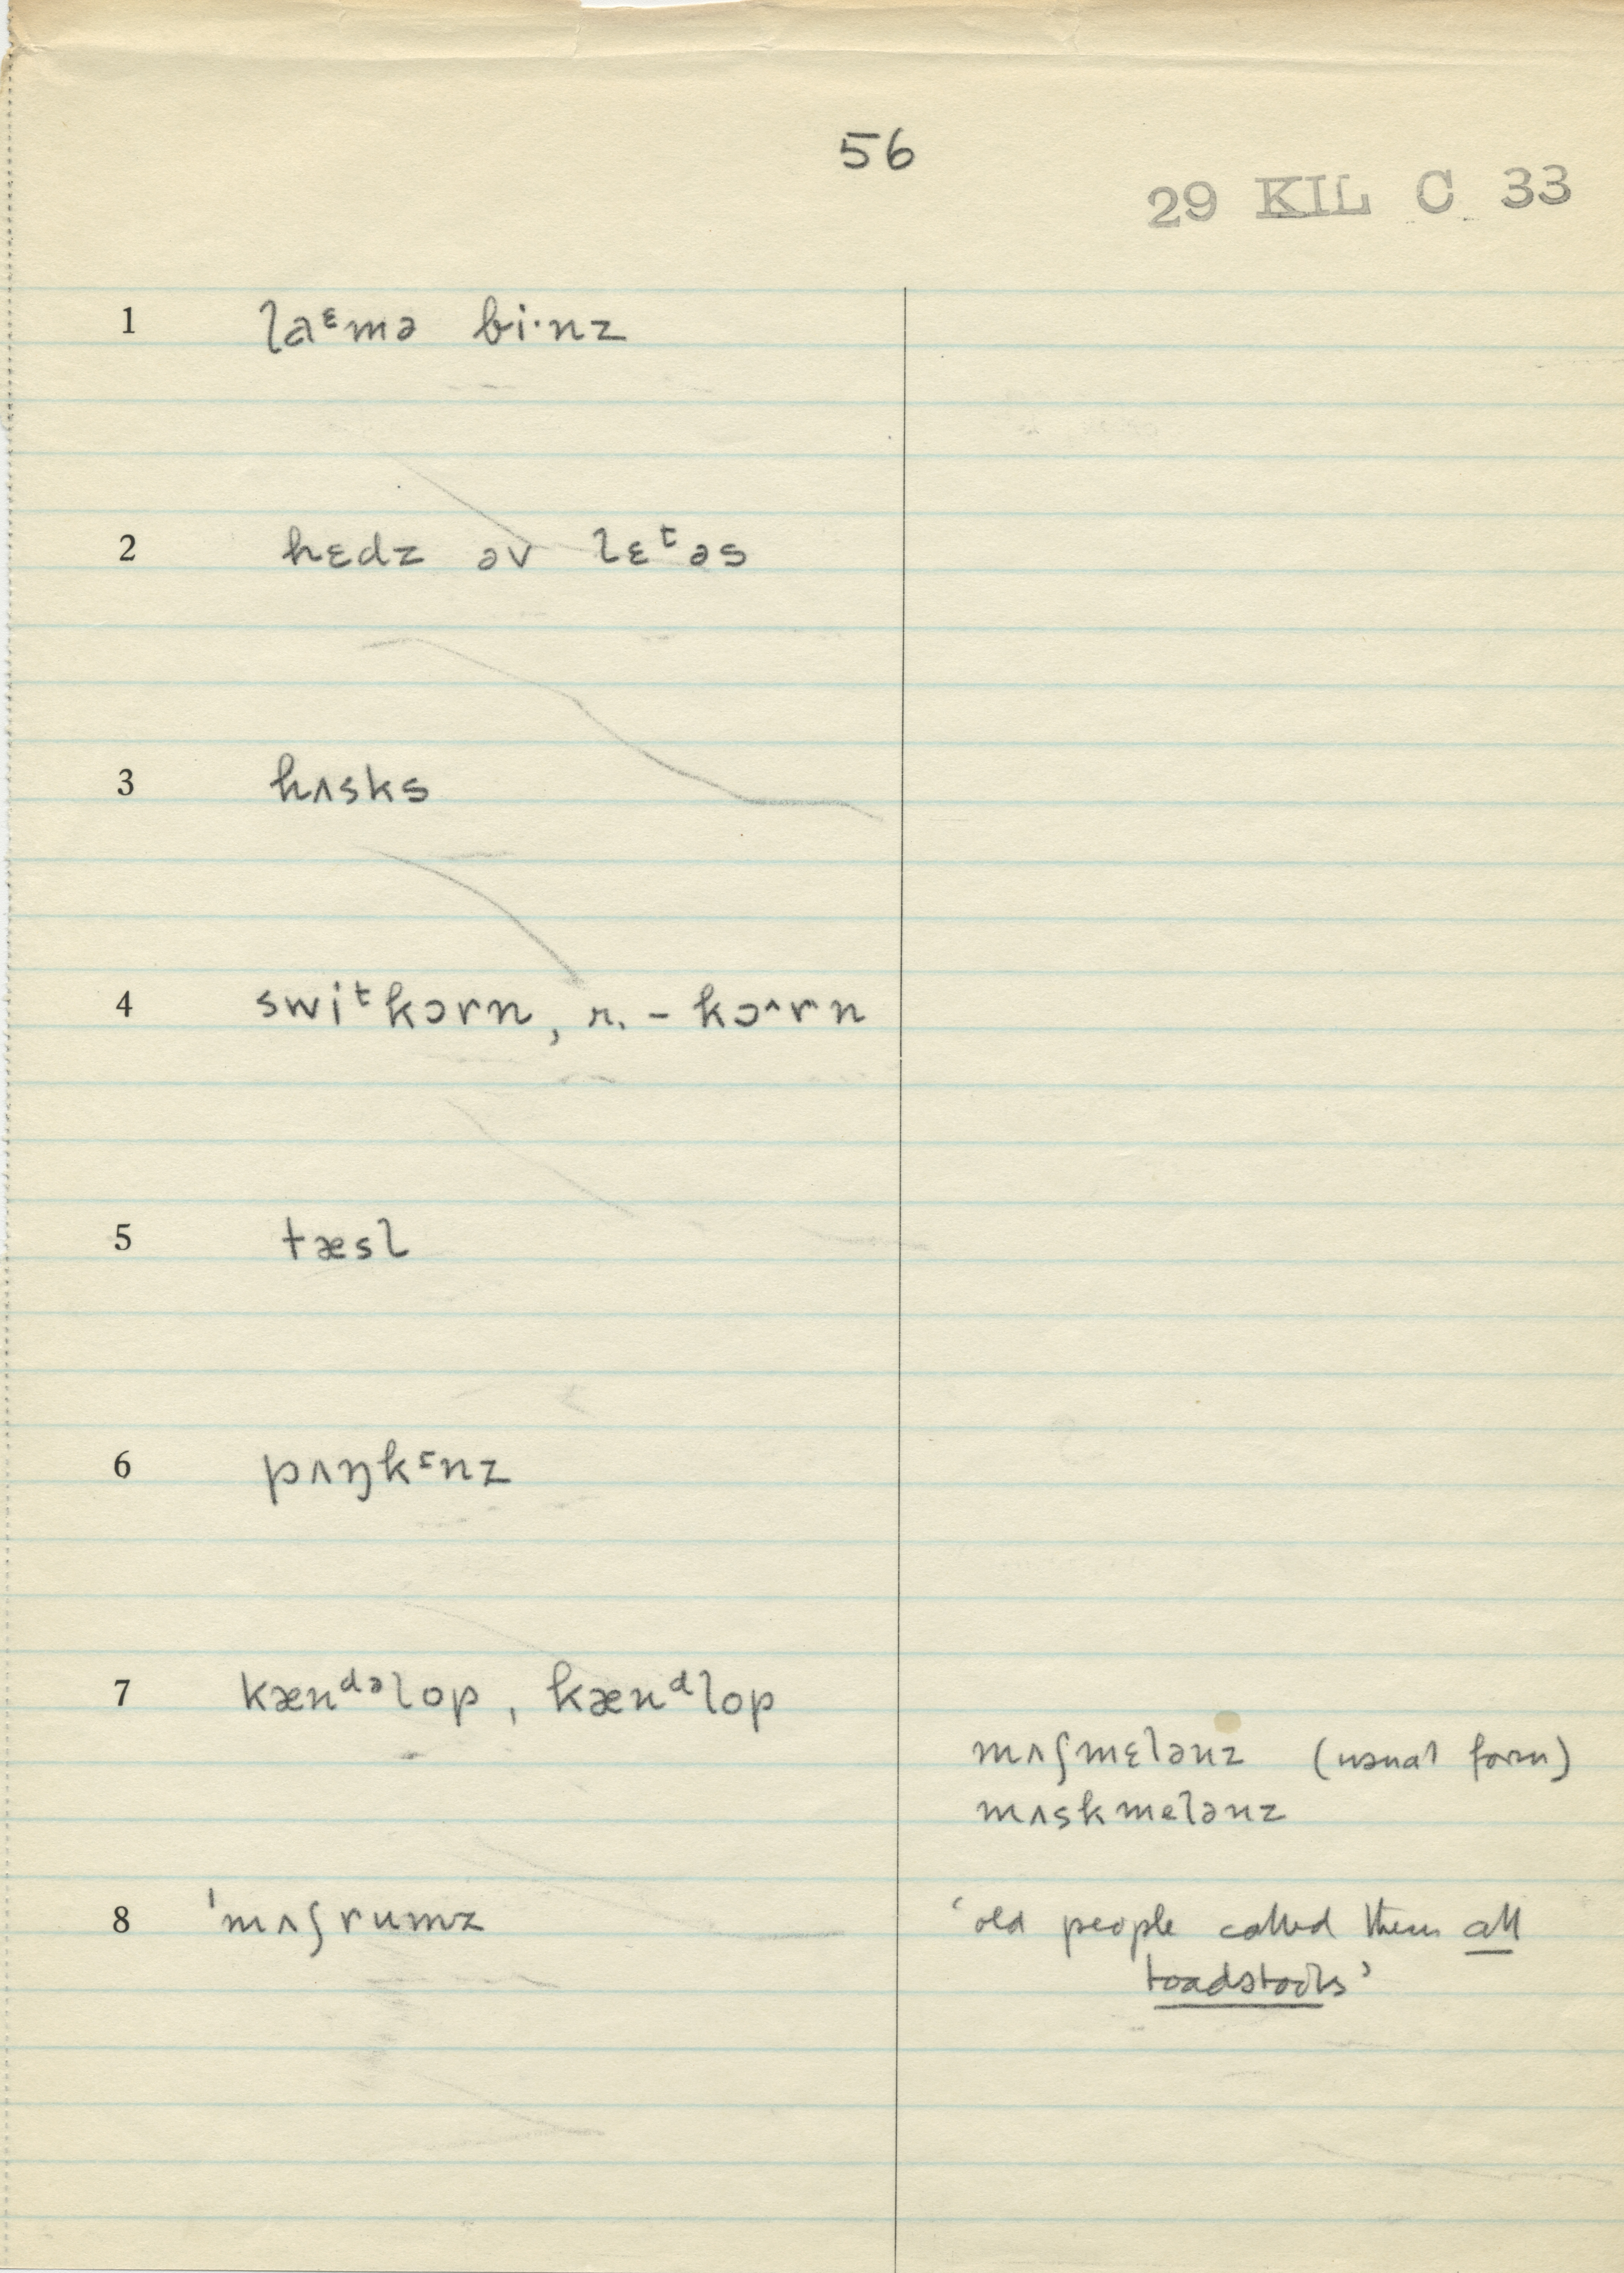 56
29 KIL C 33
1 laᵋmə bi·nz
2 hɛdz əv lɛᵗəs
3 hʌsks
4 swiᵗkɔrn, r. – kɔ^rn
5 tæsl
6 pʌŋkᵗnz
7 kænᵈᵊlop, kænᵈlop
mʌʃmɛlənz (usual form)
mʌskmelənz
8 ˈmʌʃrumz
‘old people called them all
toadstools’